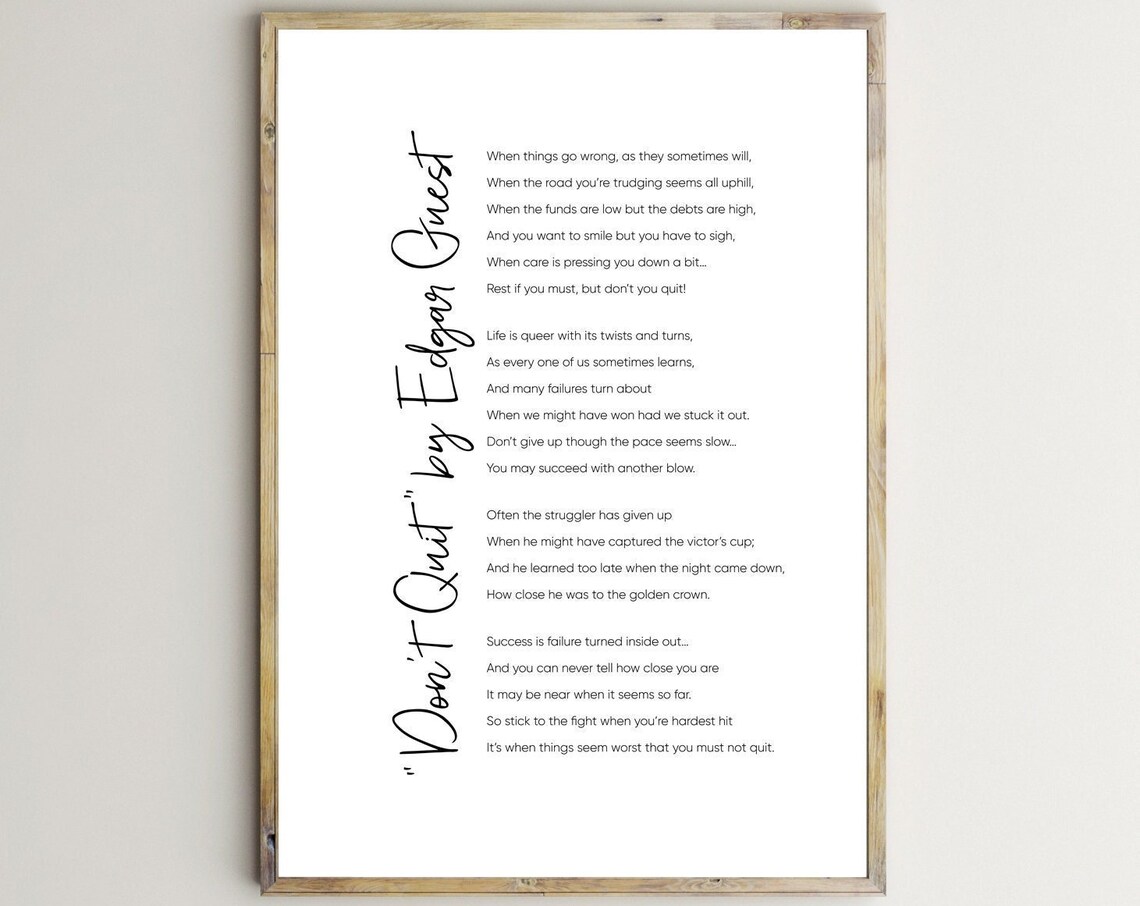 "Don't Quit" by Edgar Guest
When things go wrong, as they sometimes will,
When the road you're trudging seems all uphill,
When the funds are low but the debts are high,
And you want to smile but you have to sigh,
When care is pressing you down a bit...
Rest if you must, but don't you quit!
Life is queer with its twists and turns,
As every one of us sometimes learns,
And many failures turn about
When we might have won had we stuck it out.
Don't give up though the pace seems slow...
You may succeed with another blow.
Often the struggler has given up
When he might have captured the victor's cup;
And he learned too late when the night came down,
How close he was to the golden crown.
Success is failure turned inside out...
And you can never tell how close you are
It may be near when it seems so far.
So stick to the fight when you're hardest hit
It's when things seem worst that you must not quit.